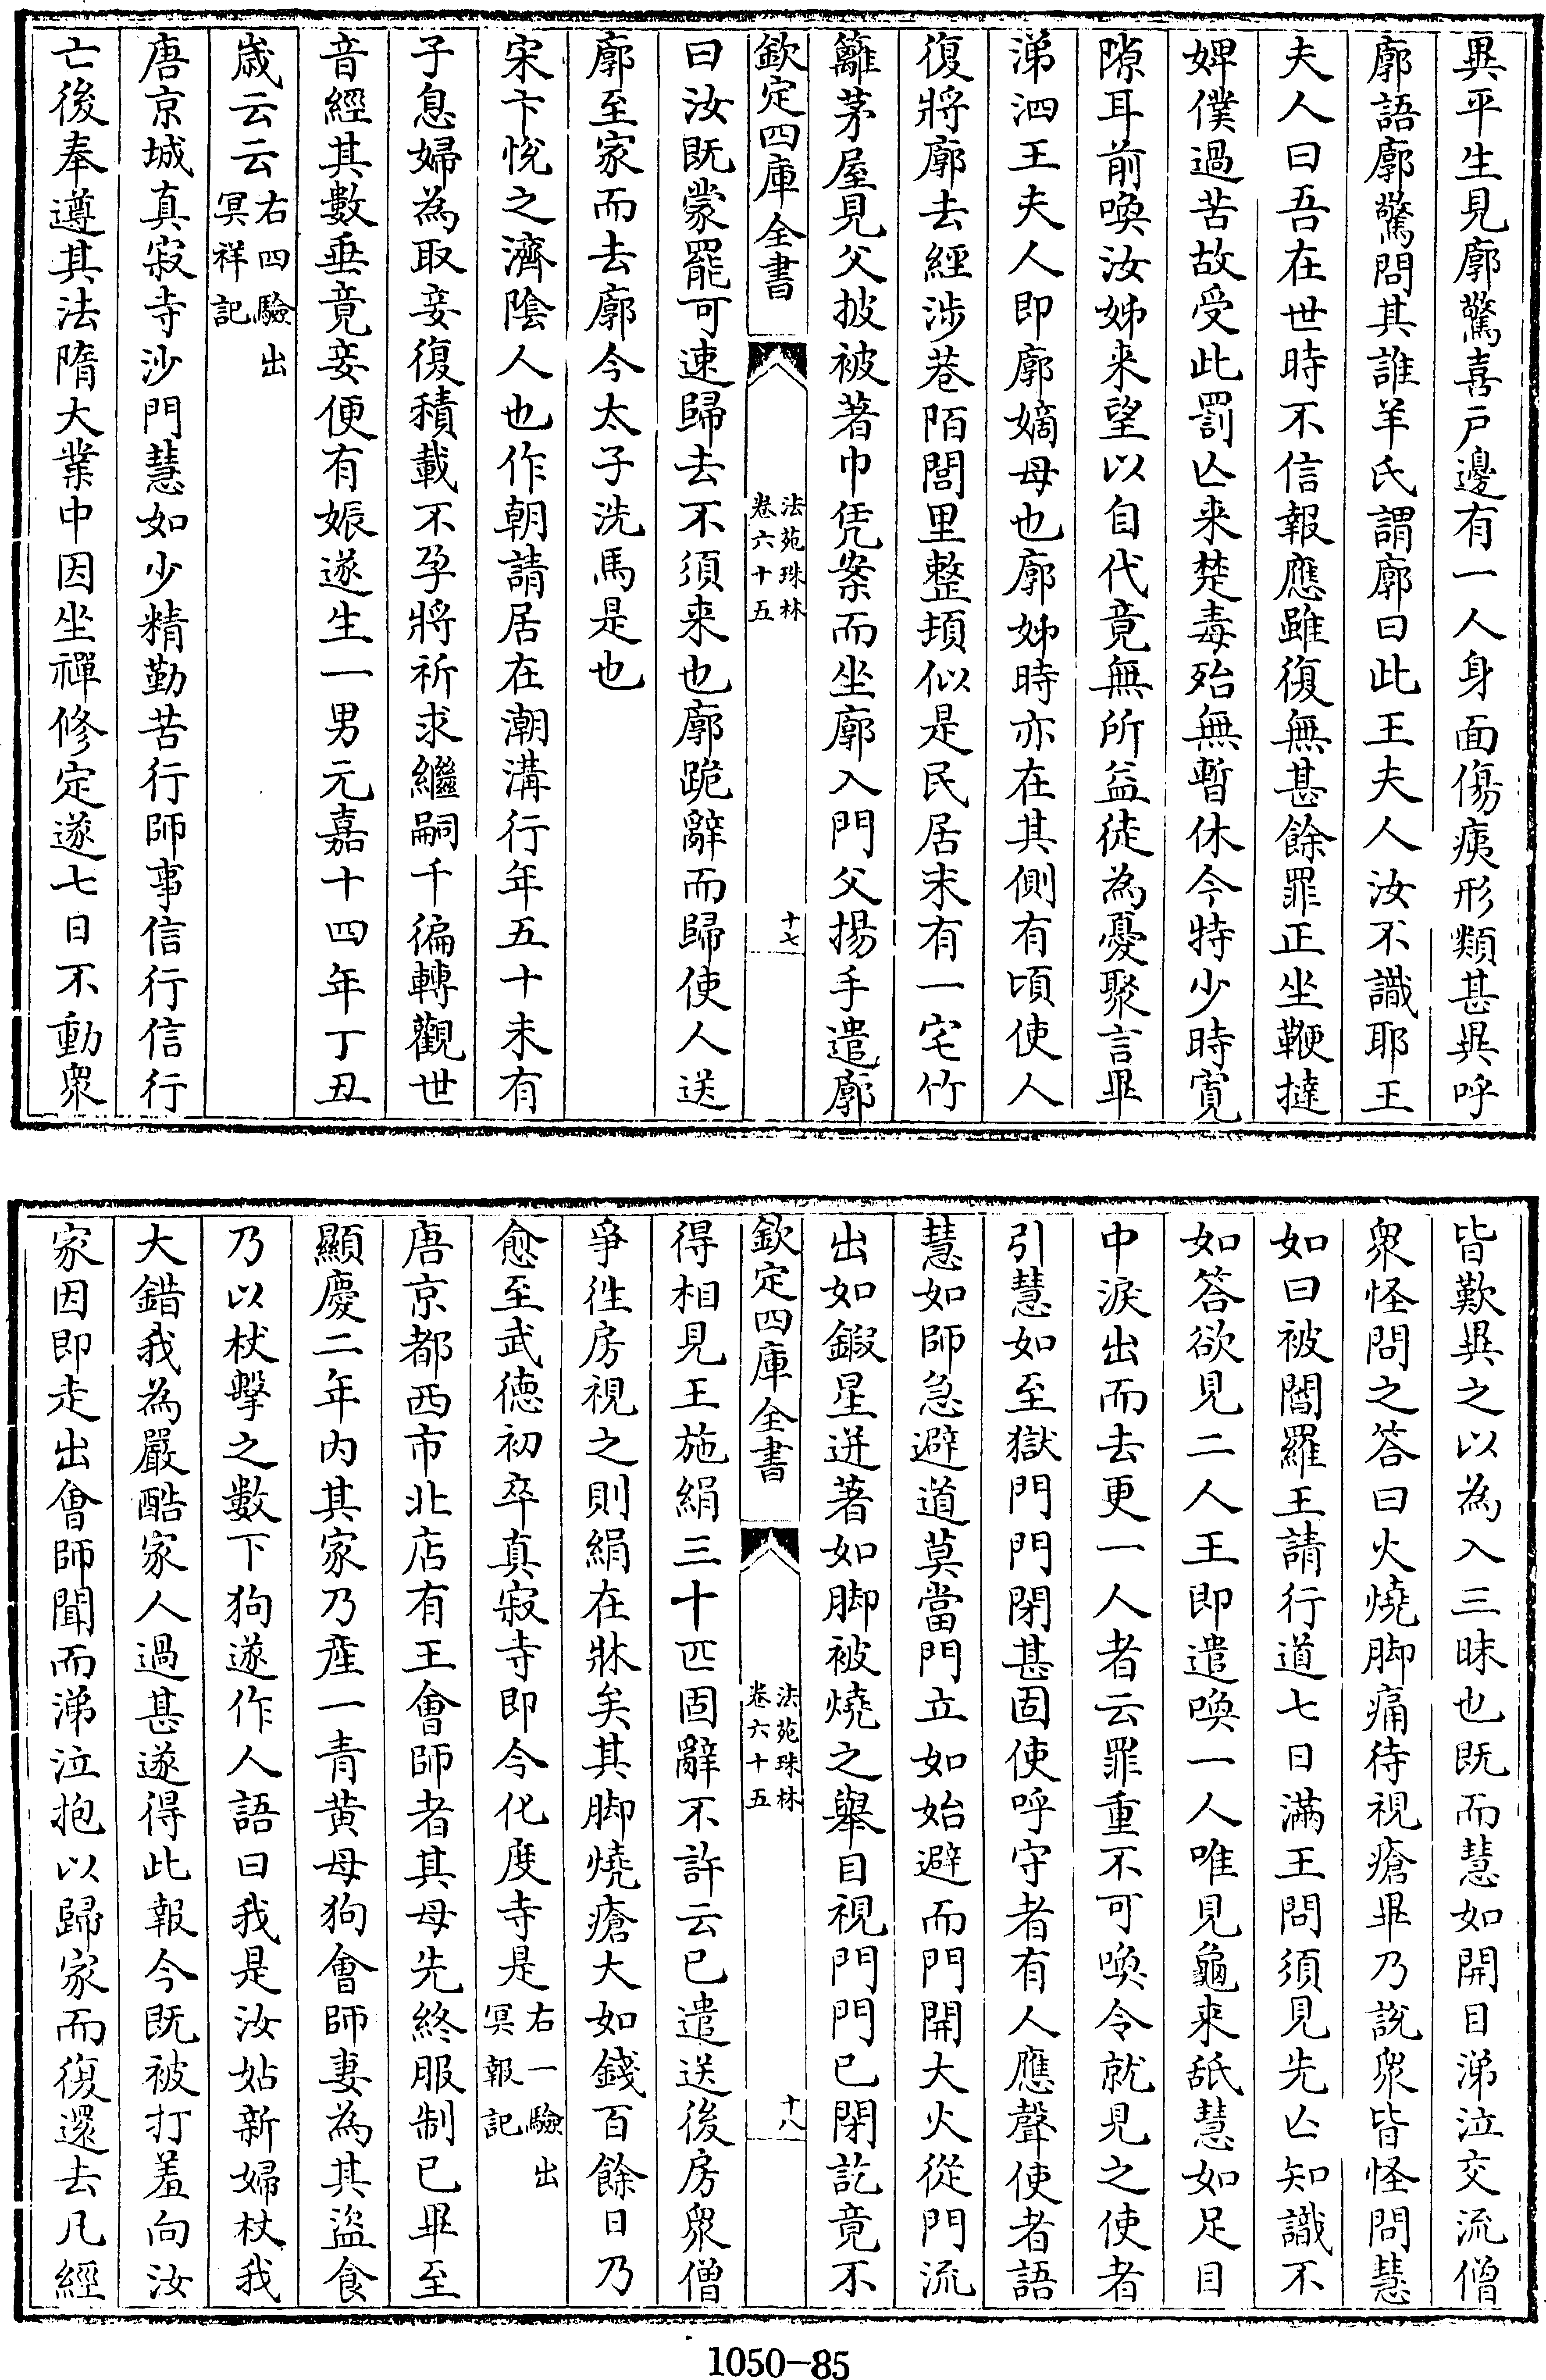 異平生見廓驚喜戸邊有一人身面傷痍形類甚異呼
廓語廓驚問其誰羊氏謂廓曰此王夫人汝不識耶王
夫人曰吾在世時不信報應雖復無甚餘罪正坐鞭撻
婢僕過苦故受此罰亡来楚毒殆無暫休今特少時寛
隙耳前喚汝姊来望以自代竟無所益徒為憂聚言畢
涕泗王夫人即廓嫡母也廓姊時亦在其側有頃使人
復將廓去經渉巷陌閭里整頓似是民居末有一宅竹
籬茅屋見父披被著巾凭案而坐廓入門父揚手遣廓
欽定四庫全書
法苑珠林
卷六十五
十七
曰汝既蒙罷可速歸去不須来也廓跪辭而歸使人送
廓至家而去廓今太子洗馬是也
宋卞恱之濟陰人也作朝請居在潮溝行年五十未有
子息婦為取妾復積載不孕將祈求繼嗣千徧轉觀世
音經其數垂竟妾便有娠遂生一男元嘉十四年丁丑
歲云云右四驗出
冥祥記
唐京城真寂寺沙門慧如少精勤苦行師事信行信行
亡後奉遵其法隋大業中因坐禪修定遂七日不動衆
皆歎異之以為入三昧也既而慧如開目涕泣交流僧
衆怪問之答曰火燒脚痛待視瘡畢乃說衆皆怪問慧
如曰被閻羅王請行道七日滿王問須見先亡知識不
如答欲見二人王即遣喚一人唯見龜来舐慧如足目
中淚出而去更一人者云罪重不可喚令就見之使者
引慧如至獄門門閉甚固使呼守者有人應聲使者語
慧如師急避道莫當門立如始避而門開大火從門流
出如鍜星迸著如脚被燒之舉目視門門已閉訖竟不
欽定四庫全書
法苑珠林
卷六十五
十八
得相見王施絹三十匹固辭不許云已遣送後房衆僧
爭徃房視之則絹在牀矣其脚燒瘡大如錢百餘日乃
愈至武徳初卒真寂寺即今化度寺是右一驗出
冥報記
唐京都西市北店有王會師者其母先終服制已畢至
顯慶二年内其家乃産一青黄母狗會師妻為其盜食
乃以杖擊之數下狗遂作人語曰我是汝姑新婦杖我
大錯我為嚴酷家人過甚遂得此報今既被打羞向汝
家因即走出會師聞而涕泣抱以歸家而復還去凡經
1050-85